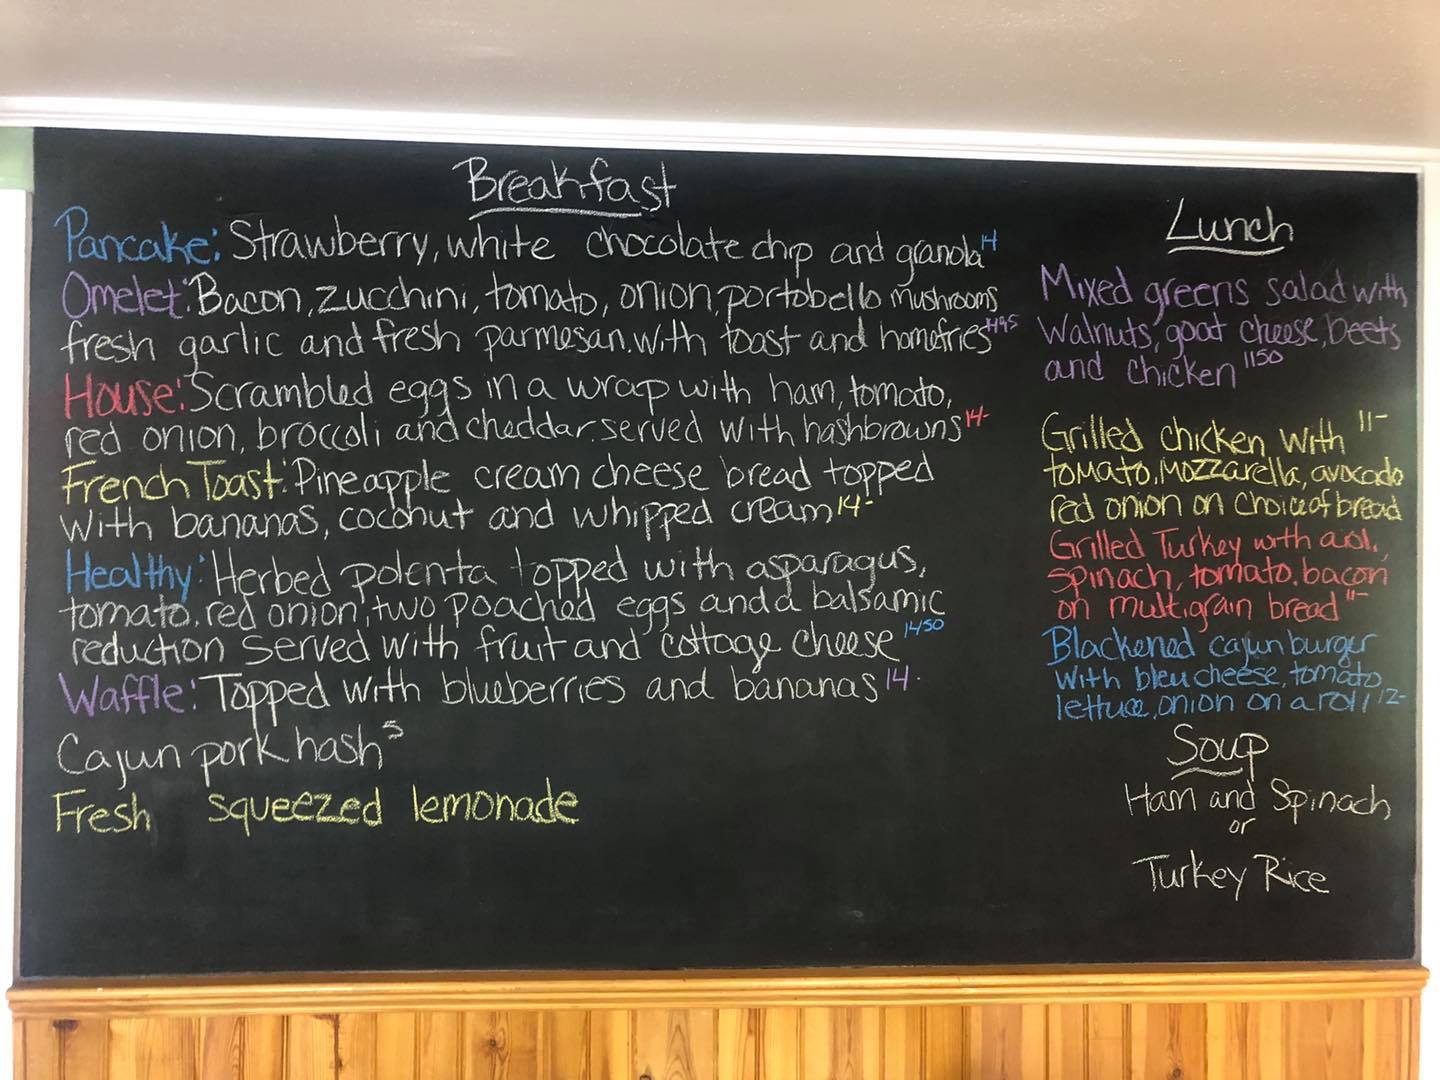 Breakfast
Pancake: Strawberry, white chocolate chip and granola 14
Omelet: Bacon, zucchini, tomato, onion, portobello mushrooms
fresh garlic and fresh parmesan. with toast and homefries 1495
House: Scrambled eggs in a wrap with ham, tomato,
red onion, broccoli and cheddar. served with hashbrowns 14-
French Toast: Pineapple cream cheese bread topped
with bananas, coconut and whipped cream 14-
Healthy: Herbed polenta topped with asparagus,
tomato, red onion, two poached eggs and a balsamic
reduction served with fruit and cottage cheese 1450
Waffle: Topped with blueberries and bananas 14-
Cajun pork hash 5
Fresh squeezed lemonade
Lunch
Mixed greens salad with
walnuts, goat cheese, beets
and chicken 1150
Grilled chicken with 11-
tomato, mozzarella, avocado
red onion on choice of bread
Grilled Turkey with aioli,
spinach, tomato, bacon
on multigrain bread 11-
Blackened cajun burger
with bleu cheese, tomato,
lettuce, onion on a roll 12-
Soup
Ham and Spinach
or
Turkey Rice